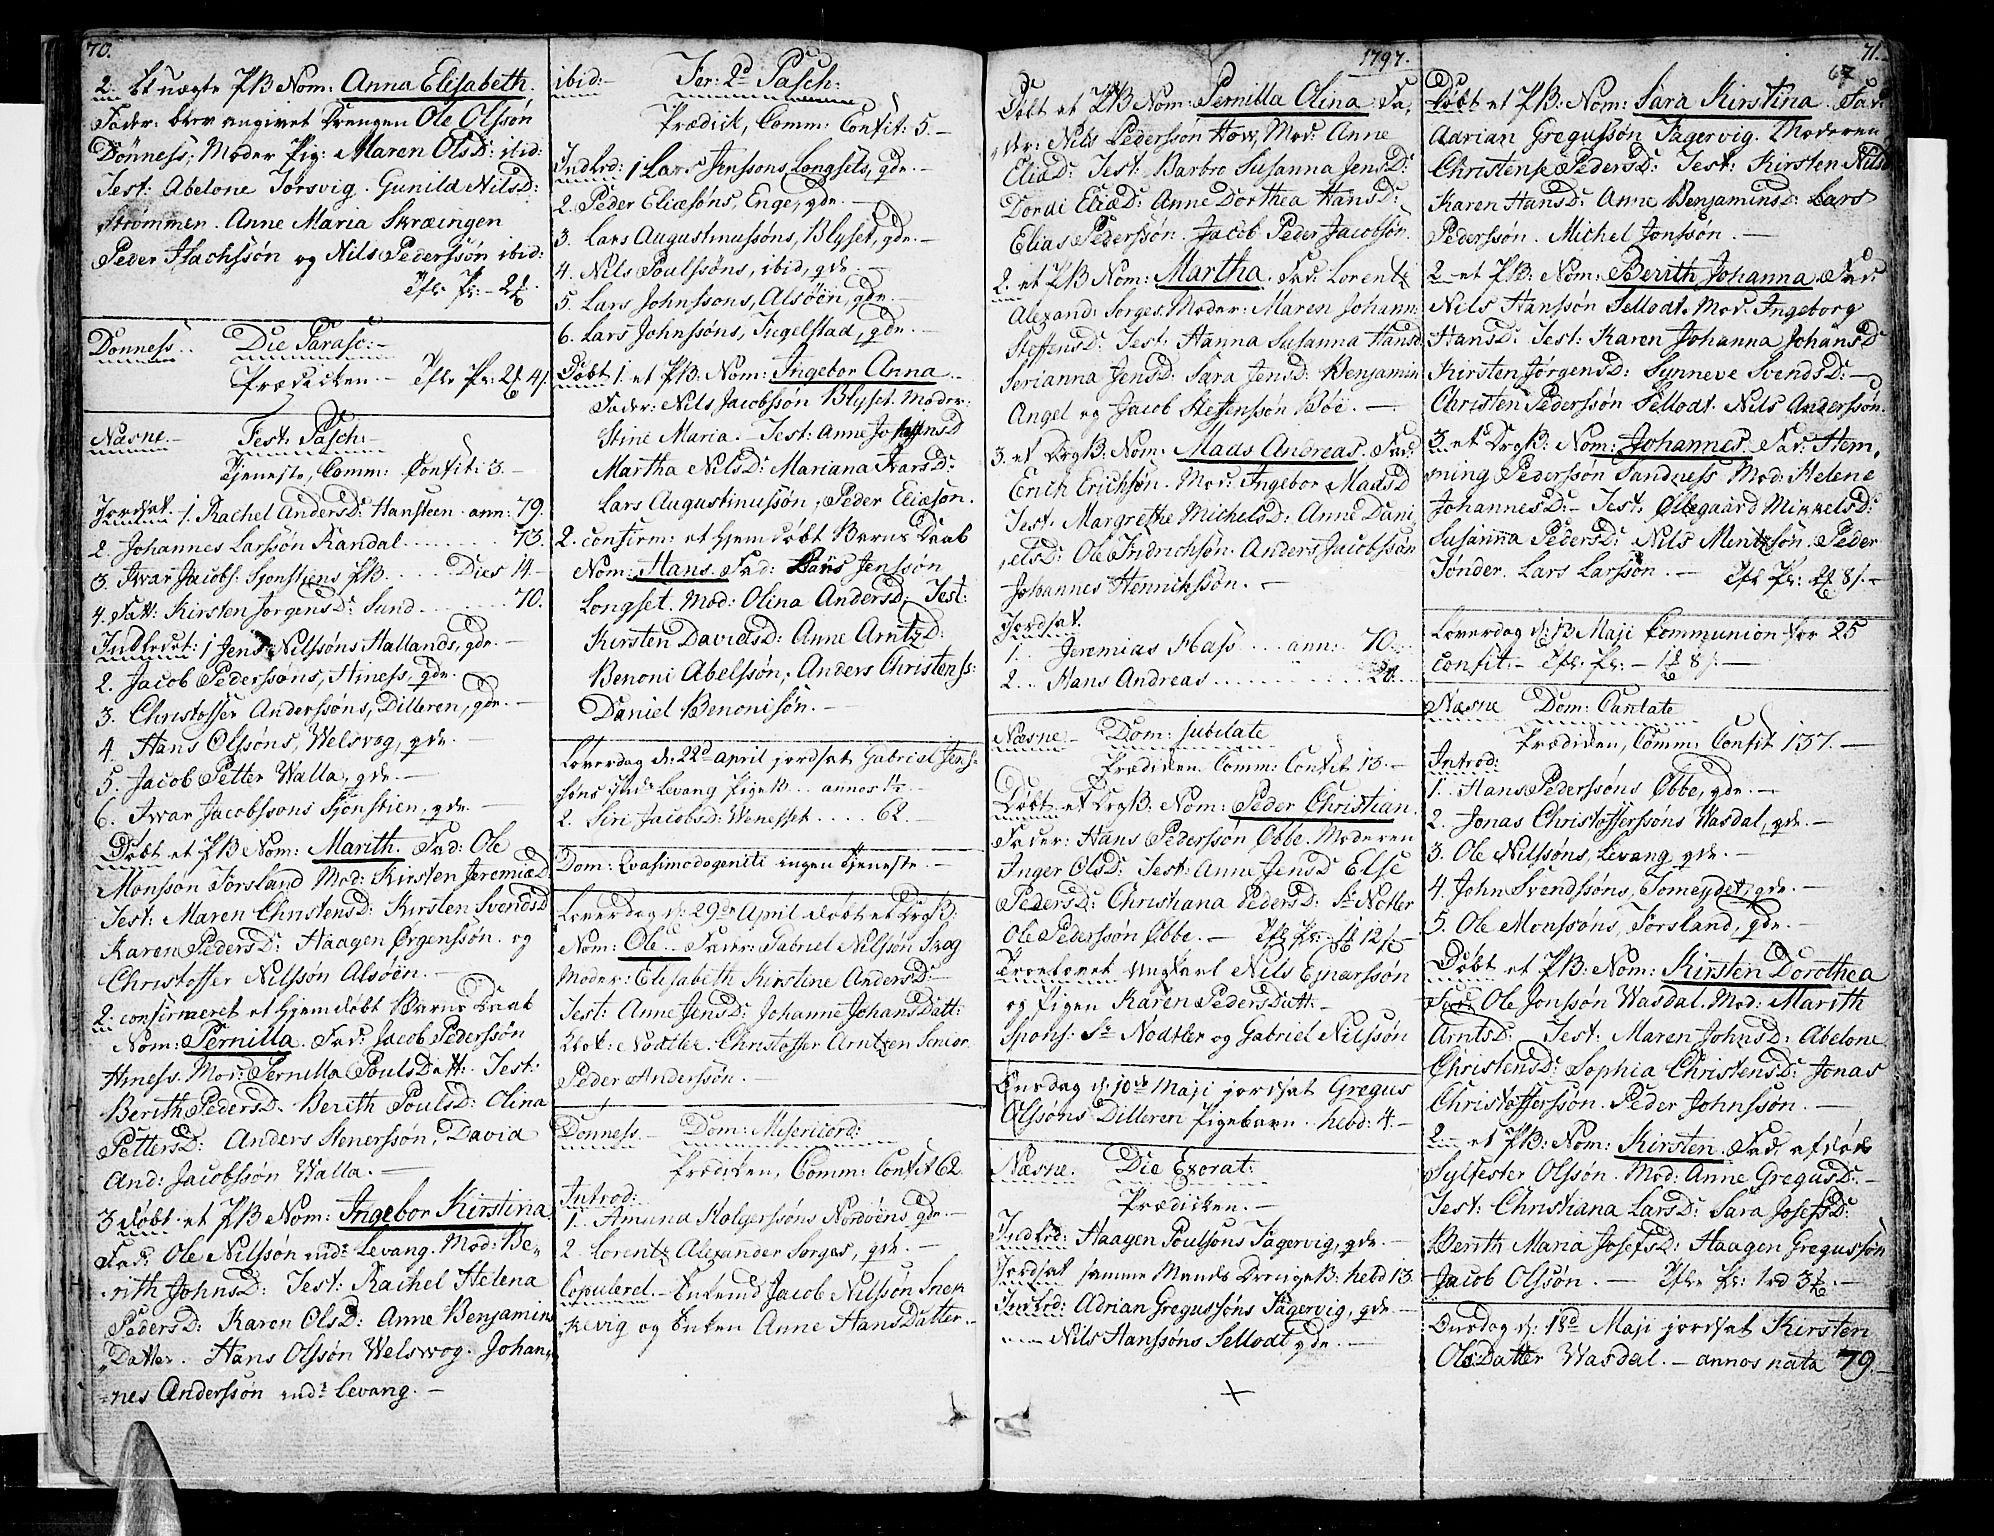 70.
2. Et uægte PB Nom: Anna Elisabeth.
Fader: blev angivet Drengen Ole Olssön
Dönness, Moder Pig: Maren OlsD: ibid:
Test: Abelone Torsvig. Gunild NilsD:
Strömmen. Anne Maria Skræingen
Peder Hachssön og Nils Pederssön ibid:
Donness. Die Parasc:
Prædicken
Næsne. Fest: Pasch:
Tjeneste, Comm: Confit: 3.
Jordsat. 1. Rachel AndersD: Hansteen ann: 79.
2. Johannes Larssön Randal 73.
3. Iwar Jacobs: Sjonstiens PB Dies 14
4. Fatt: Kirsten JorgensD: Sund 70.
Indledet: 1 Jens Nilssöns Hallands, qde.
2. Jacob Pederssöns, Hiness, qde.
3. Christoffer Anderssöns, Dilleren, qde.
4. Hans Olssöns, Welsvog, qde.
5. Jacob Petter Walla, qde.
6. Iwar Jacobssons Sjonstien, qde.
Döbt et PB Nom: Marith. Fad: Ole
Monsson Forsland Mod: Kirsten JeremiæD
Test: Maren ChristensD: Kirsten SvendsD
Karen PedersD: Haagen Ørgenssön og
Christoffer Nilssön Alsöen.
2. confirmeret et hjemdöbt Barns Daab
Nom: Pernilla. Fad: Jacob Pederssön
Hiness. Mod: Pernilla PoulsDatt: Test:
Berith PedersD. Berith PoulsD: Olina
PettersD: Anders Stenerssön, David
And: Jacobssön Walla.
3 döbt et PB Nom: Ingebor Kirstina
Fad: Ole Nilssön ind: Levang. Mod: Be-
rith JohnsD: Test: Rachel Helena
PedersD: Karen OlsD: Anne Benjamins
Datter. Hans Olssön Welsvog. Johan-
nes Anderssön ind: Levang.
ibid: Fer: 2d Pasch:
Prædick, Comm: Confit: 5.
Indled: 1 Lars Jenssons, Longsets, qde.
2. Peder Eliæsöns, Enge, qde.
3. Lars Augustinussöns, Blyset, qde.
4. Nils Poulssöns, ibid, qde.
5. Lars Johnssons, Alsöen, qde.
6. Lars Johnssöns, Tiegelstad, qde.
Döbt 1. et PB: Nom: Ingebor Anna
Fader: Nils Jacobssön Blyset. Moder:
Stine Maria. Test: Anne JosephsD
Martha NilsD: Mariana IvarsD:
Lars Augustinussön, Peder Eliæson.
2. confirm: et hjemdöbt Barns Daab
Nom: Hans. Fad: Lars Jenssön
Longset. Mod: Olina AndersD: Test:
Kirsten DavidsD: Anne ArntzD:
Benoni Abelssön, Anders Christenss:
Daniel Benonisön.
Löverdag d: 22d april jordsat Gabriel Jens-
söns ind: Levang PigeB annos 1½
2. Siri JacobsD: Wenesset 62.
Dom: Qvasimodogeniti ingen tjeneste.
Löverdag d: 29de April döbt et DrgB:
Nom: Ole. Fader: Gabriel Nilssön Skog
Moder: Elisabeth Kirstine AndersD:
Test: Anne JensD: Johanne JohansDatt:
Klok: Nodtler. Christoffer Arntzen Senior
Peder Anderssön.
Donness. Dom: Misericord:
Prædicken, Comm: Confit 62
Introd:
1. Amund Holgerssöns Nordöens qde.
2. Lorentz Alexander Sorges, qde.
Copuleret. Enkemd Jacob Nilssön Snek-
kevig og Enken Anne HansDatter.
1797.
Döbt et PB Nom: Pernilla Olina Fa-
der: Nils Pederssön How, Mod: Anne
EliæD: Test: Barbro Susanna JensD:
Dordi EliæD: Anne Dorthea HansD:
Elias Pederssön. Jacob Peder Jacobsön.
2. et PB Nom: Martha. Fad: Lorentz
Alexand: Sorges. Moder: Maren Johann:
SteffensD: Test: Hanna Susanna HansD
Serianna JensD: Sara JensD: Benjamin
Angel og Jacob Steffenssön Böe.
3. et DrgB: Nom: Mads Andreas. Fad:
Erich Ericksön. Mod: Ingebor MadsD
Test: Margrethe MichelsD: Anne Dani-
elsD: Ole Fridrichsön. Anders Jacobssön
Johannes Henrickssön.
Jordsat.
1. Jeremias Hass ann: 70.
2. Hans Andreas
Næsne Dom: Jubilate
Prædicken Comm: Confit 13.
Döbt et DrgB: Nom: Peder Christian.
Fader: Hans Pederssön Öbbe. Moderen
Inger OlsD: Test: Anne JensD Else
PedersD: Christiana PedersD: Sr Notler
Ole Pederssön Öbbe.
Troelovet Ungkarl Nils Ejnarssön
og Pigen Karen PedersDatt:
Spons: Sr Nodtler og Gabriel Nilssön
Onsdag d: 10de Maji jordsat Gregus
Olssöns Dilleren Pigebarn hebd: 4.
Næsne. Die Exorat:
Prædicken.
Indled: Haagen Poulsons Fagervig, qde.
Jordsat samme Mands DrengeB: hebd 13.
Indled: Adrian Gregussöns Fagervig, qde
Nils Hanssöns Sellodt qde.
71.
67
Döbt et PB: Nom: Sara Kirstina. Fad:
Adrian Gregussön Fagervig. Moderen
Christense PedersD: Test: Kirsten NilsD
Karen HansD: Anne BenjaminsD: Lars
Pederssön. Michel Jonssön.
2 et PB: Nom: Berith Johanna Fad:
Nils Hanssön Sellodt. Mod: Ingeborg
HansD: Test: Karen Johanna JohansD
Kirsten JörgensD: Synneve SvendsD:
Christen Pederssön Sellodt. Nils Anderssön.
3 et DrgB: Nom: Johannes. Fad: Hem-
ming Pederssön Sandness Mod: Helene
JohannesD: Test: Ollegaard MikkelsD:
Susanna PedersD: Nils Mentzsön. Peder
Tönder. Lars Larssön.
Löverdag d: 13 Maji Communion for 25
Confit:
Næsne Dom: Cantate
Prædicken, Comm: Confit 137.
Introd:
1. Hans Pederssöns Öbbe, qde.
2. Jonas Christofferssöns Wasdal, qde.
3. Ole Nilssöns, Levang qde.
4. John Svendssöns, Someydet, qde.
5. Ole Monssöns, Forsland, qde.
Döbt et PB: Nom: Kirsten Dorothea
Fad: Ole Jonssön Wasdal. Mod: Marith
ArntsD: Test: Maren JohnsD: Abelone
ChristensD: Sophia ChristensD: Jonas
Christofferssön. Peder Johnssön.
2 et PB: Nom: Kirsten. Fad: afdöde
Sylfester Olssön. Mod: Anne GregusD:
Test: Christiana LarsD: Sara JosefsD:
Berith Maria JosefsD: Haagen Gregussön
Jacob Olssön.
Onsdag d: 18de Maji jordsat Kirsten
OlsDatter Wasdal. annos nata 79.